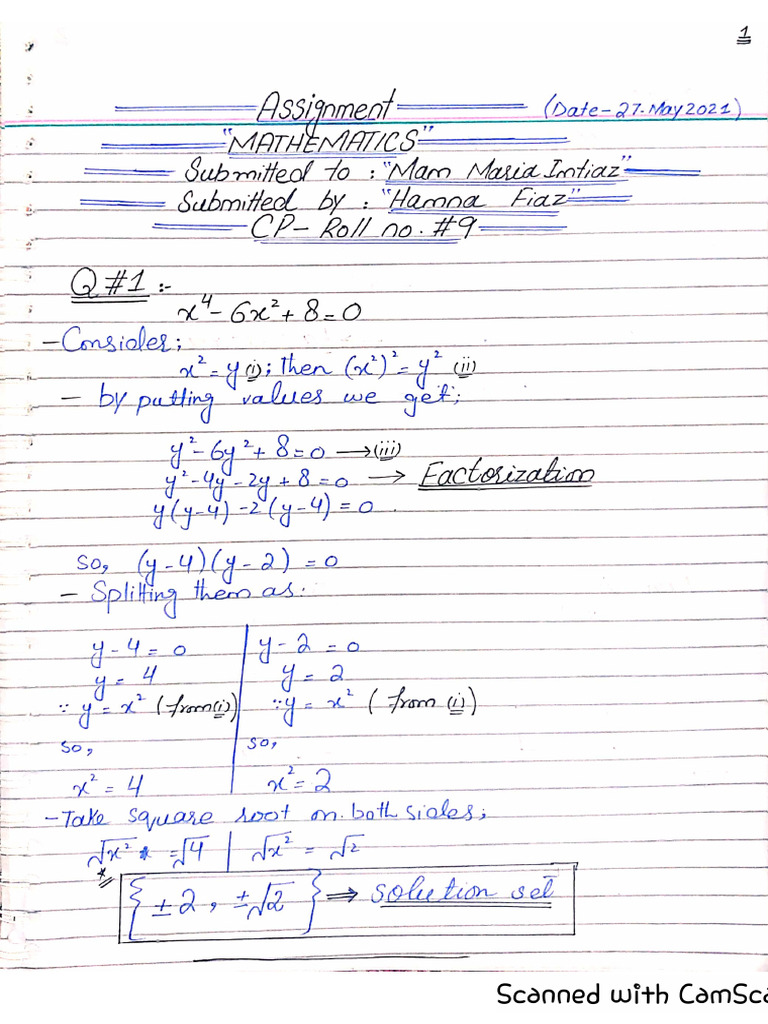 1
Assignment (Date-27-May2021)
"MATHEMATICS"
Submitted to : "Mam Maria Imtiaz"
Submitted by : "Hamna Fiaz"
CP- Roll no. #9
Q#1 :-
x⁴ - 6x² + 8 = 0
- Consider;
x² = y (i); then (x²)² = y² (ii)
- by putting values we get;
y² - 6y² + 8 = 0 → (iii)
y² - 4y - 2y + 8 = 0 → Factorization
y(y-4) -2(y-4) = 0.
so, (y-4)(y-2) = 0
- Splitting them as:
y - 4 = 0 | y - 2 = 0
y = 4 | y = 2
∵ y = x² (from(i)) | ∵ y = x² (from (i))
so, | so,
x² = 4 | x² = 2
- Take square root on both sides;
√x² = √4 | √x² = √2
* {±2, ±√2} ⇒ solution set
Scanned with CamSca